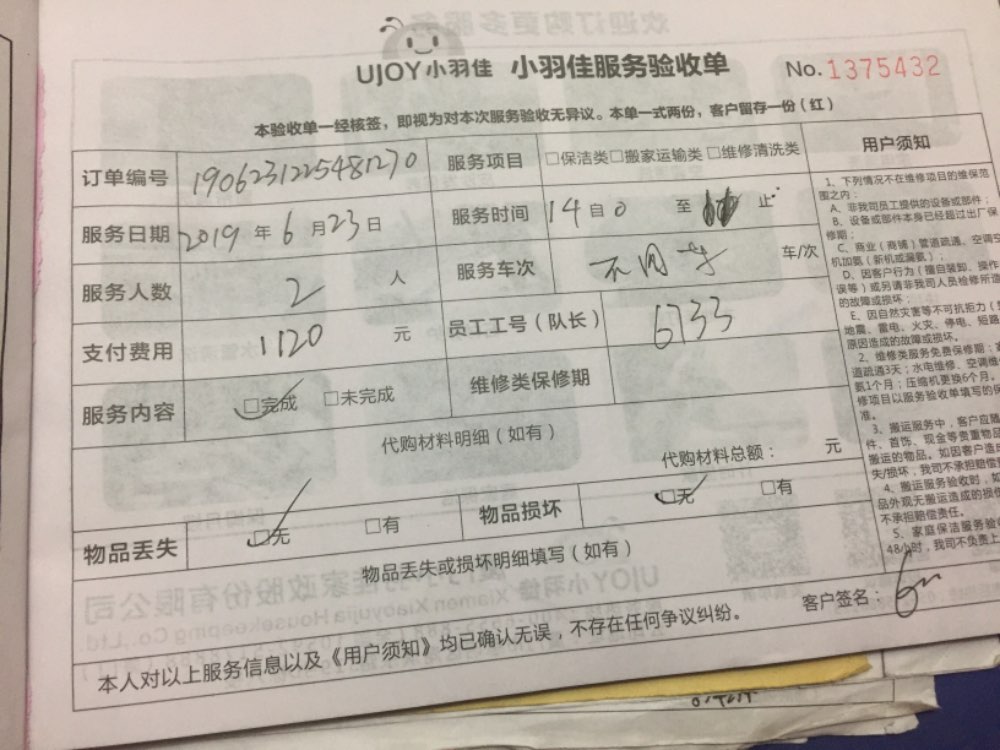 UJOY小羽佳 小羽佳服务验收单 No.1375432
本验收单一经核签，即视为对本次服务验收无异议。本单一式两份，客户留存一份（红）
订单编号 190623122548127​0 服务项目 □保洁类□搬家运输类□维修清洗类
服务日期 2019年6月23日 服务时间 14自0 至 止
服务人数 2 人 服务车次 不同车 车/次
支付费用 1120 元 员工工号（队长） 6733
服务内容 □完成 □未完成 维修类保修期
代购材料明细（如有）
代购材料总额： 元
物品丢失 □无 □有 物品损坏 □无 □有
物品丢失或损坏明细填写（如有）
客户签名：
本人对以上服务信息以及《用户须知》均已确认无误，不存在任何争议纠纷。
用户须知
1、下列情况不在维修项目的维保范
围之内：
A、非我司员工提供的设备或部件；
B、设备或部件本身已经超过出厂保
修期；
C、商业（商铺）管道疏通、空调空
机加氨（新机或漏氨）；
D、因客户行为（擅自装卸、操作
误等）或另请非我司人员检修所造
的故障或损坏；
E、因自然灾害等不可抗拒力（
地震、雷电、火灾、停电、短路
原因造成的故障或损坏。
2、维修类服务免费保修期：
道疏通3天；水电维修、空调维
氨1个月；压缩机更换6个月。
修项目以服务验收单填写的保
准。
3、搬运服务中，客户应
件、首饰、现金等贵重物品
搬运的物品。如因客户造
失/损坏，我司不承担赔偿
4、搬运服务验收时，如
品外观无搬运造成的损
不承担赔偿责任。
5、家庭保洁服务验
48小时，我司不负责上